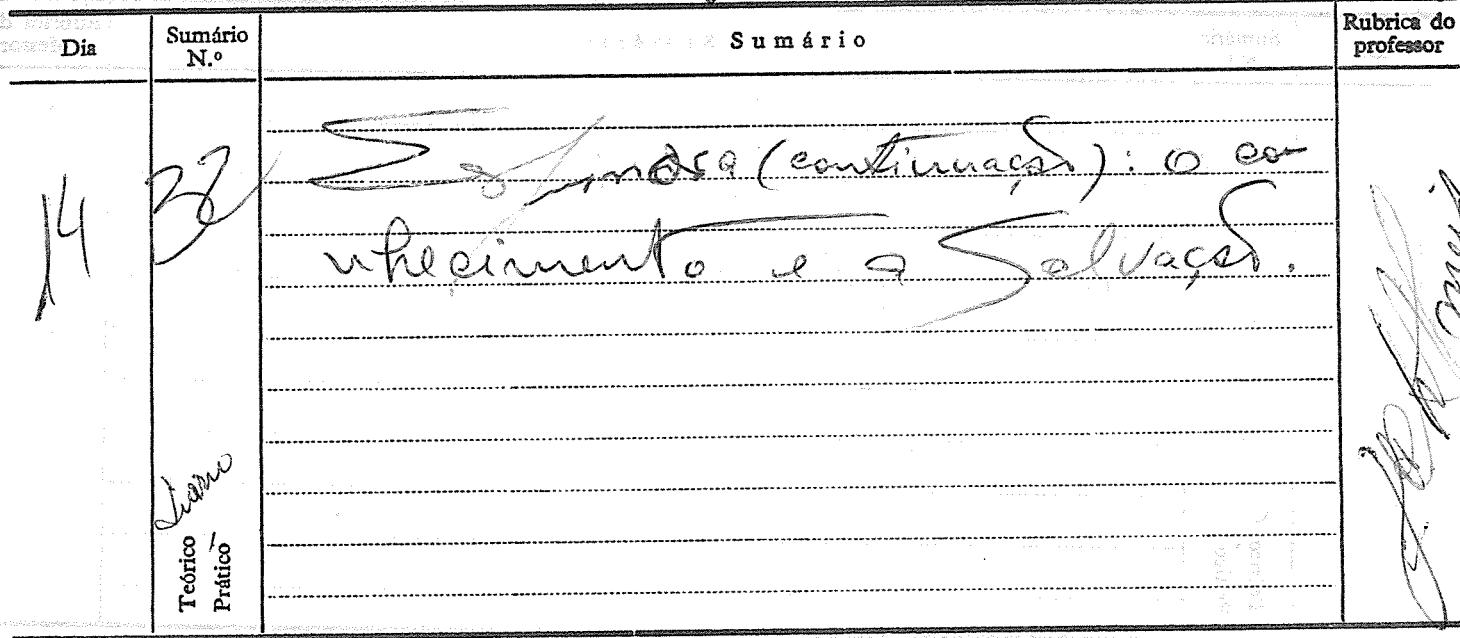 Dia Sumário N.º Sumário Rubrica do professor
14 32 Espinosa (continuação): o co-
nhecimento e a Salvação.
Teórico
Prático